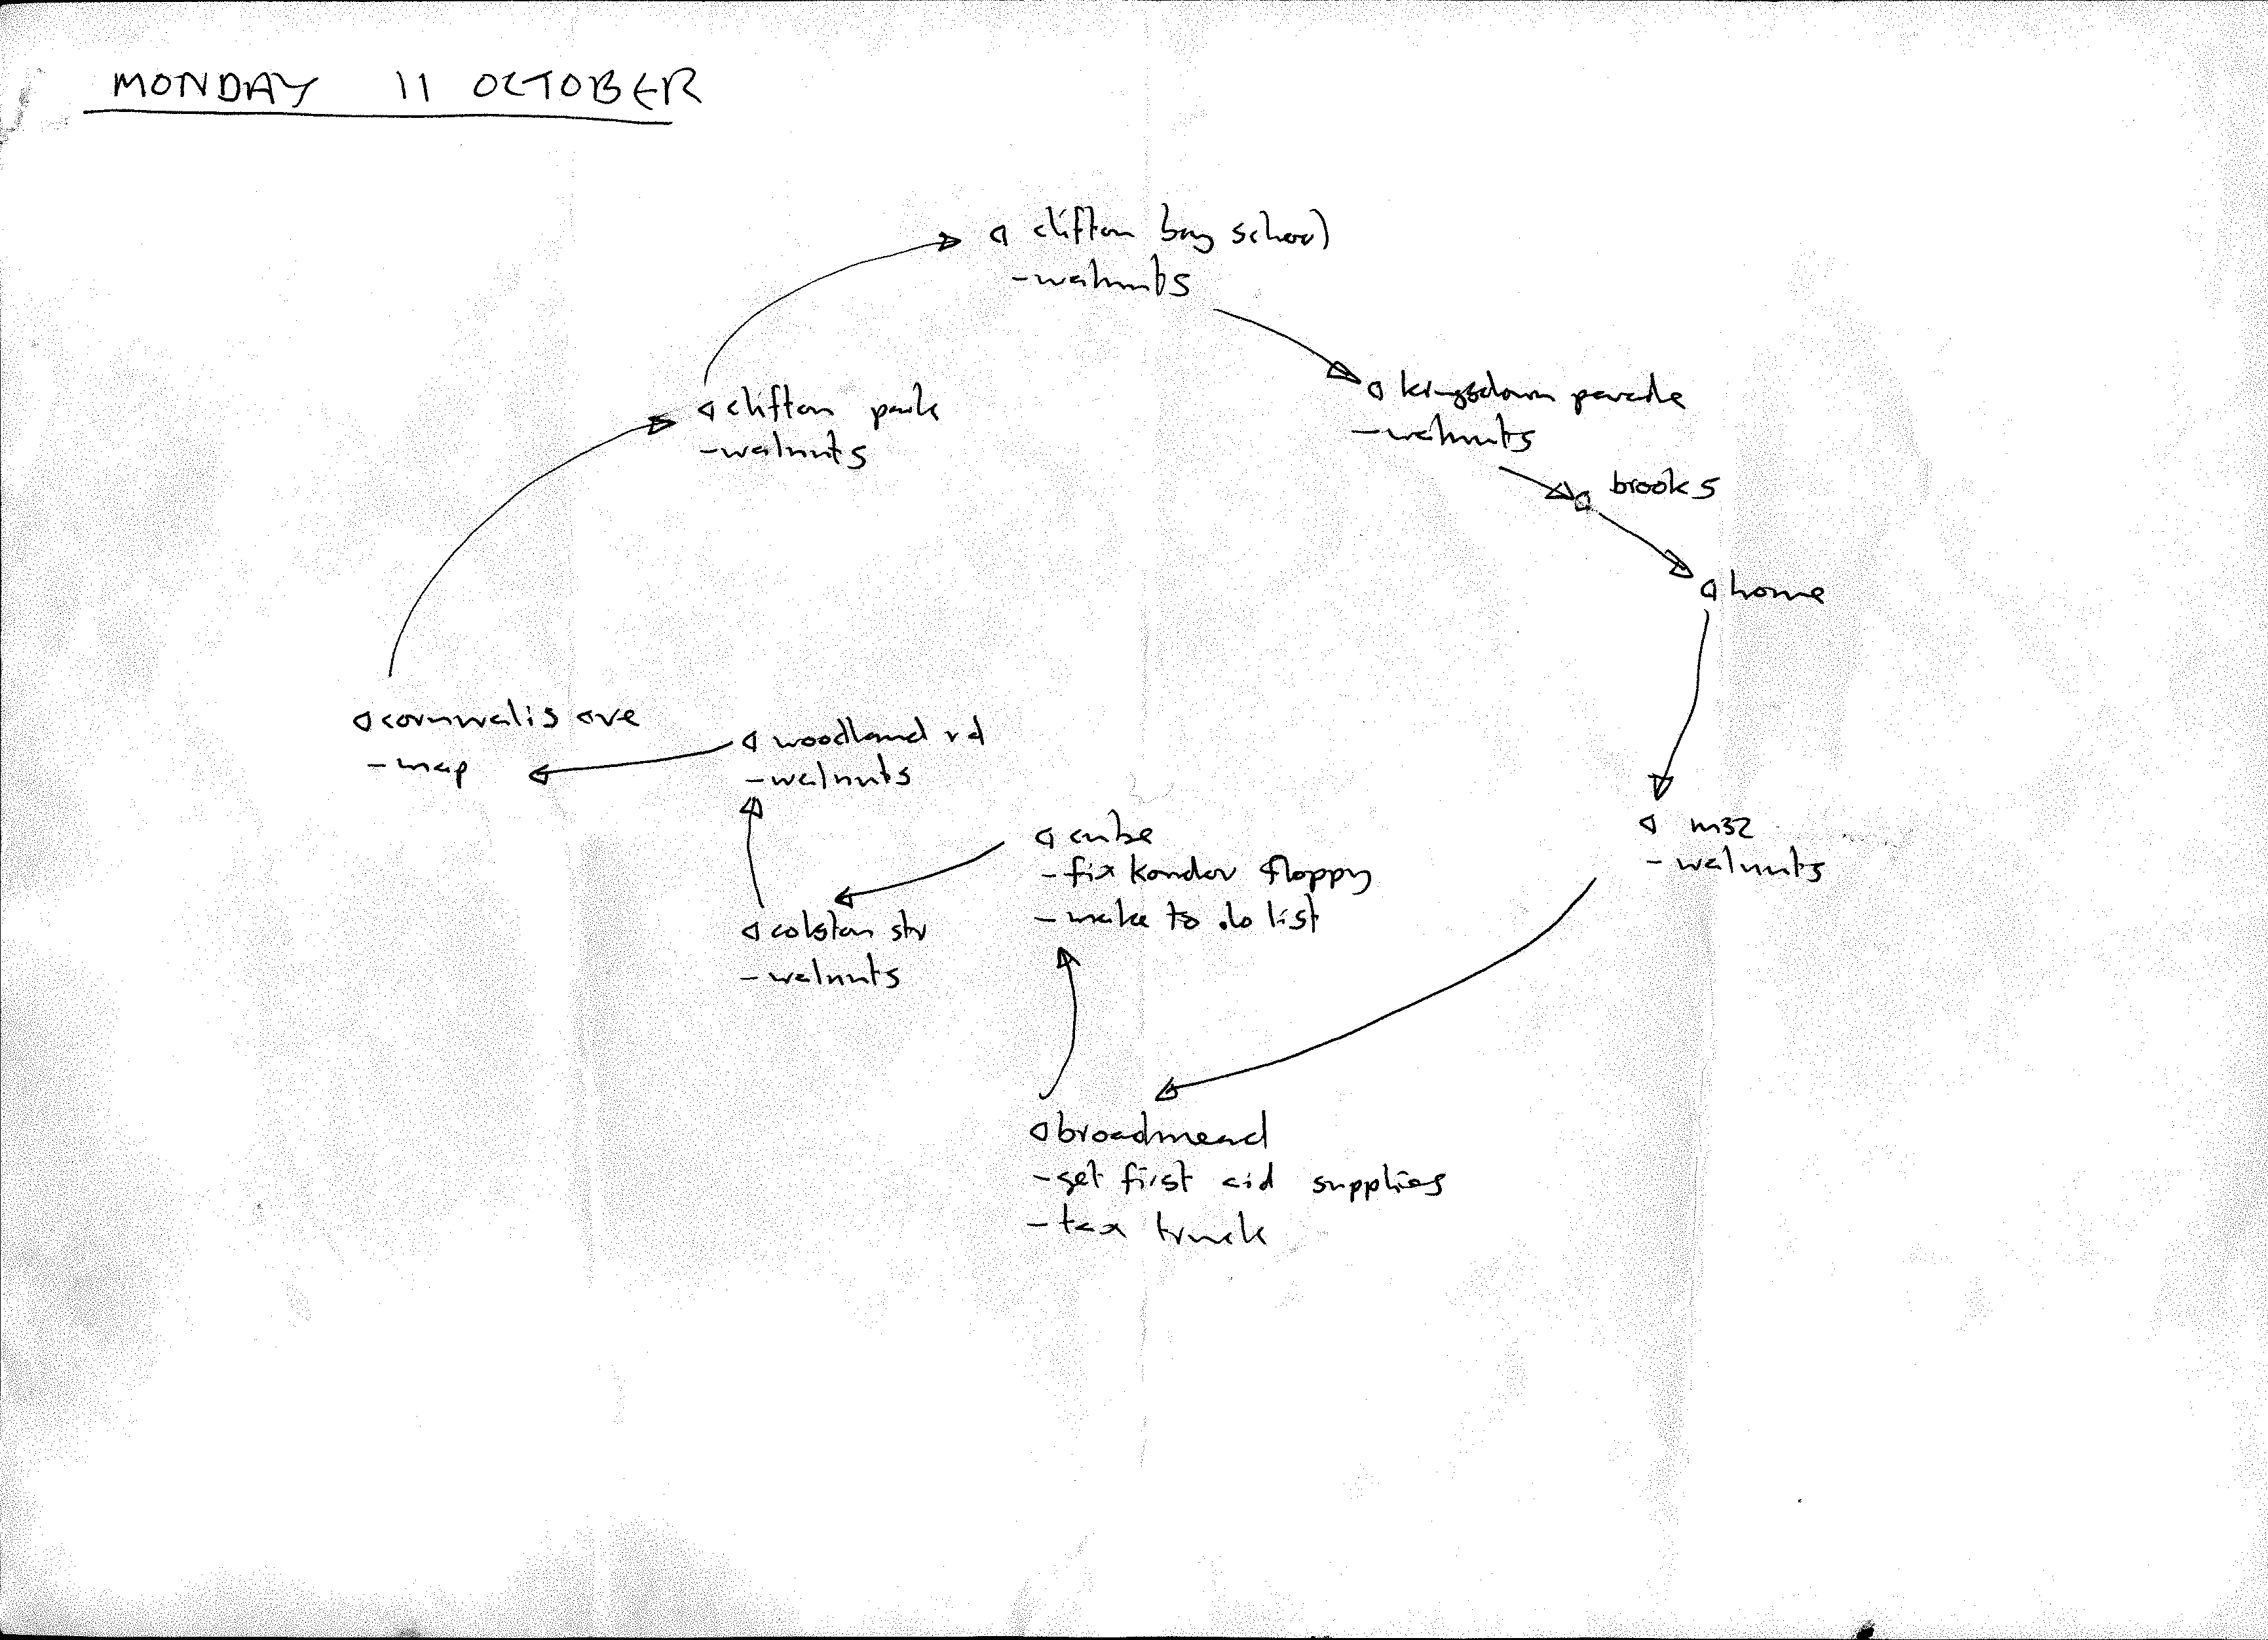 MONDAY 11 OCTOBER
clifton boy school
-walnuts
clifton park
-walnuts
kingsdown parade
-walnuts
brooks
home
cornwalis ave
-map
woodland rd
-walnuts
cube
-fix kondor floppy
-make to do list
colston str
-walnuts
m32
-walnuts
broadmead
-get first aid supplies
-tax truck